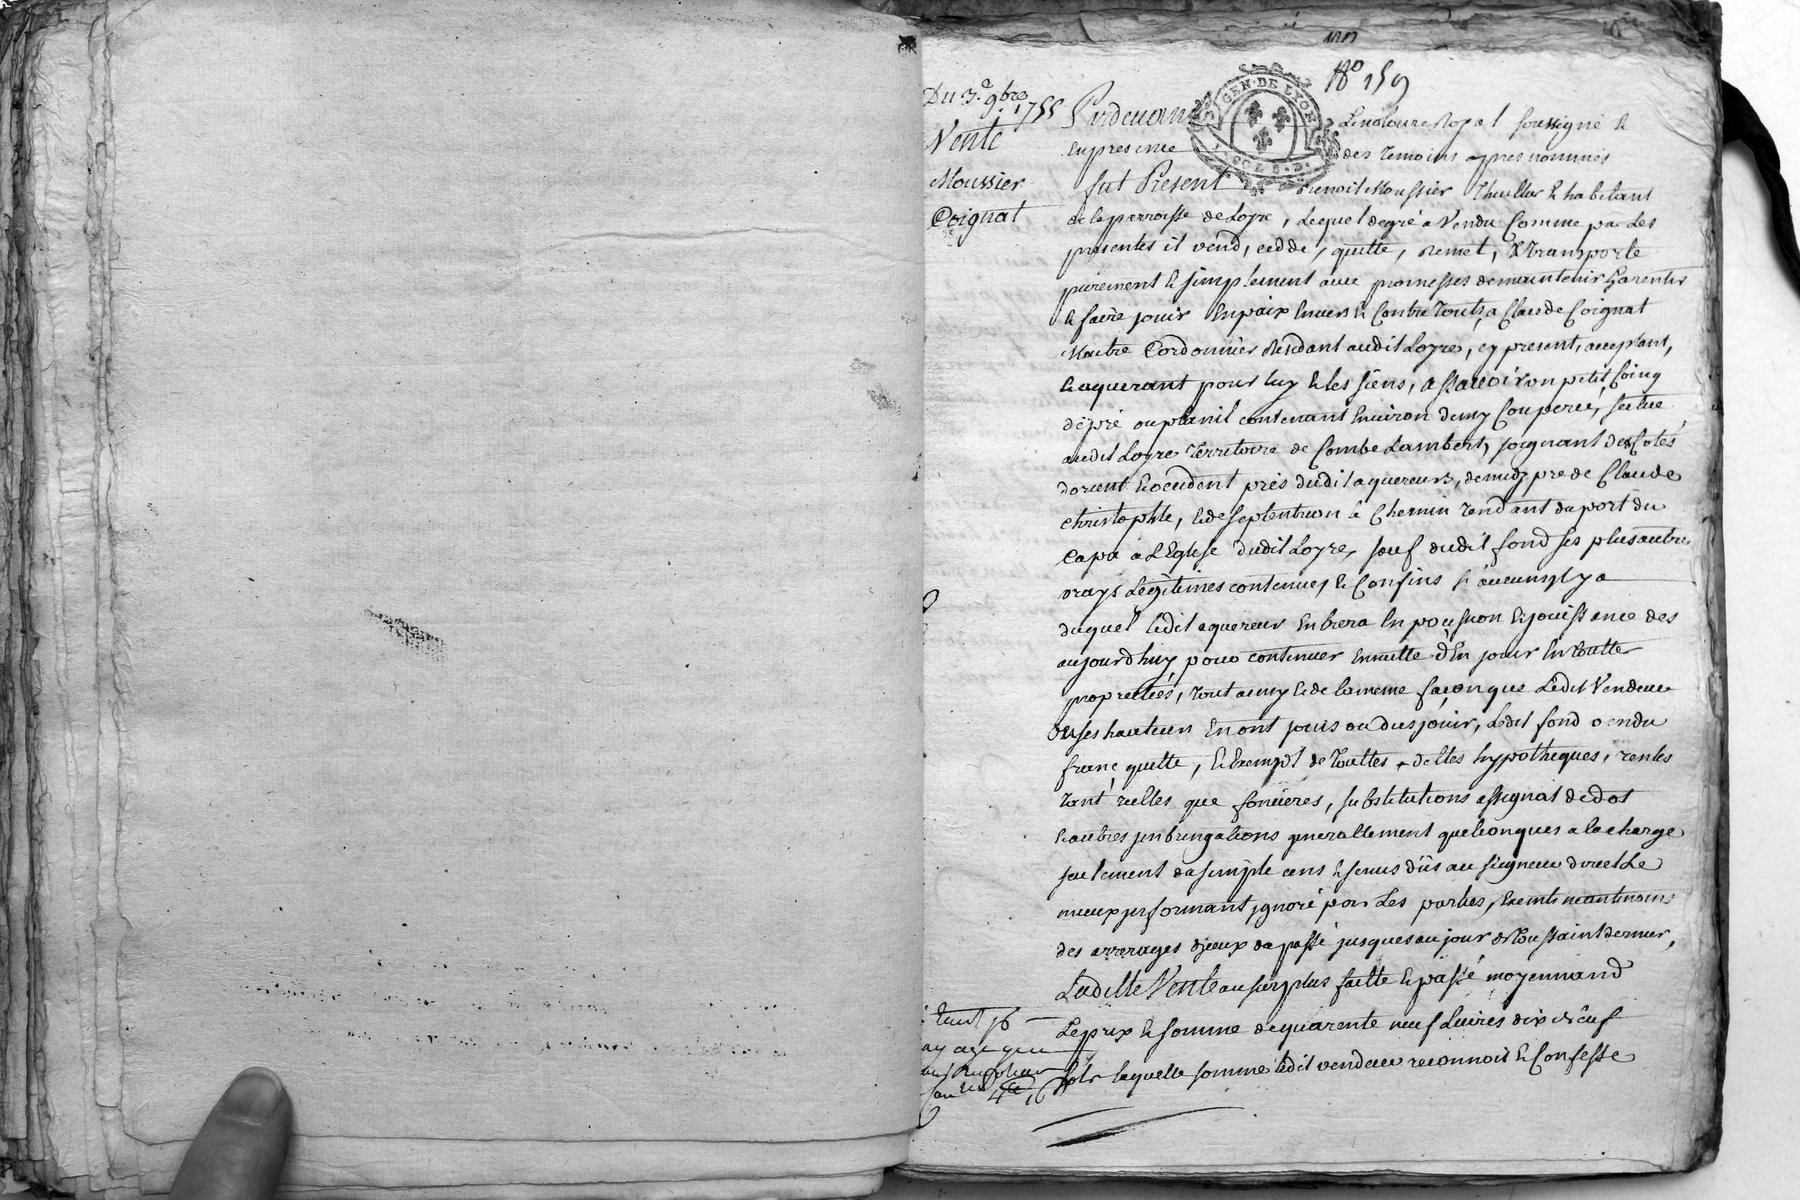 No 159
Du 3e 9bre 1755
Vente
Moussier
Coignat
GEN. DE LYON
Pardevant Le notaire Royal soussigné &
en presence des temoins apres nommés
fut Present Benoit Moussier Thuillier & habitant
de la parroisse de Loyre, Lequel de gré a Vendu Comme par Les
presentes il vend, cedde, quitte, remet, & transporte
purement & simplement avec promesses de maintenir Garentir
& faire jouir En paix Envers & Contre Touts, a Claude Coignat
Maitre Cordonnier Residant audit Loyre, cy present, acceptant,
& aquerant pour luy & les siens, a ssavoir un petit Coing
de pré ou planil contenant Environ demy Couperée, scitué
audit Loyre Territoire de Combe Lambert, joignant des Cotés
dorient & occident prés dudit aquereur, de midy pré de Claude
Christophle, & de septentrion le Chemin Tendant du port du
Capa à L'Eglise dudit Loyre, sauf dudit fond ses plus autres
vrays Légitimes contenues & Confins si aucuns y a
duquel Ledit aquereur Entrera En possession & jouissance des
aujourdhuy pour continuer Ensuitte d'En jouir En Toutte
proprieties, Tout ainsy & de la meme façon que Ledit Vendeur
ou ses hauteurs En ont jouis ou dus jouir, Ledit fond vendu
franc, quitte, & Exempt de Touttes dettes hypotheques, rentes
Tant réelles que foncieres, substitutions assignat de dot
& autres jmbringations generallement quelconques a la charge
seulement du simple cens & servis dûs au seigneur direct Le
mieux jnformant, jgnoré par Les parties, Exempt neantmoins
des arrerages d'jceux du passé jusques au jour de Toussaint dernier,
Laditte Vente au surplus faitte & passé moyennand
Le prix & somme de quarente neuf Livres dix neuf
sols laquelle somme ledit vendeur reconnoit & Confesse